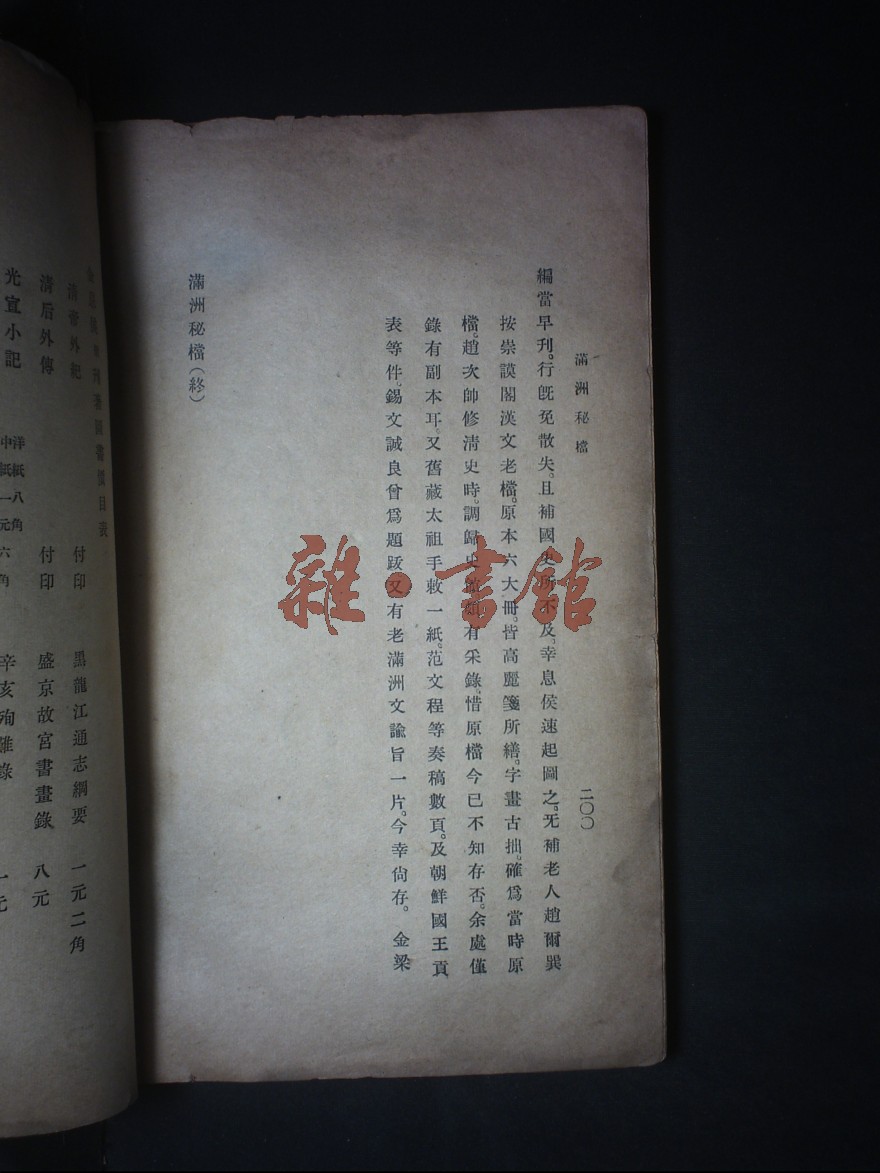 滿洲秘檔
二〇〇
編當早刊。行旣免散失。且補國史所不及。幸息侯速起圖之。无補老人趙爾巽
按崇謨閣漢文老檔。原本六大冊。皆高麗箋所繕。字畫古拙。確爲當時原
檔。趙次帥修淸史時。調歸史館。頗有采錄。惜原檔今已不知存否。余處僅
錄有副本耳。又舊藏太祖手敕一紙。范文程等奏稿數頁。及朝鮮國王貢
表等件。錫文誠良曾爲題跋。又有老滿洲文諭旨一片。今幸尙存。 金梁
滿洲秘檔（終）
雜·書館
書價目表
清帝外紀 付印 黑龍江通志綱要 一元二角
清后外傳 付印 盛京故宮書畫錄 八元
光宣小記 洋紙八角 中紙一元六角 辛亥殉難錄 一元